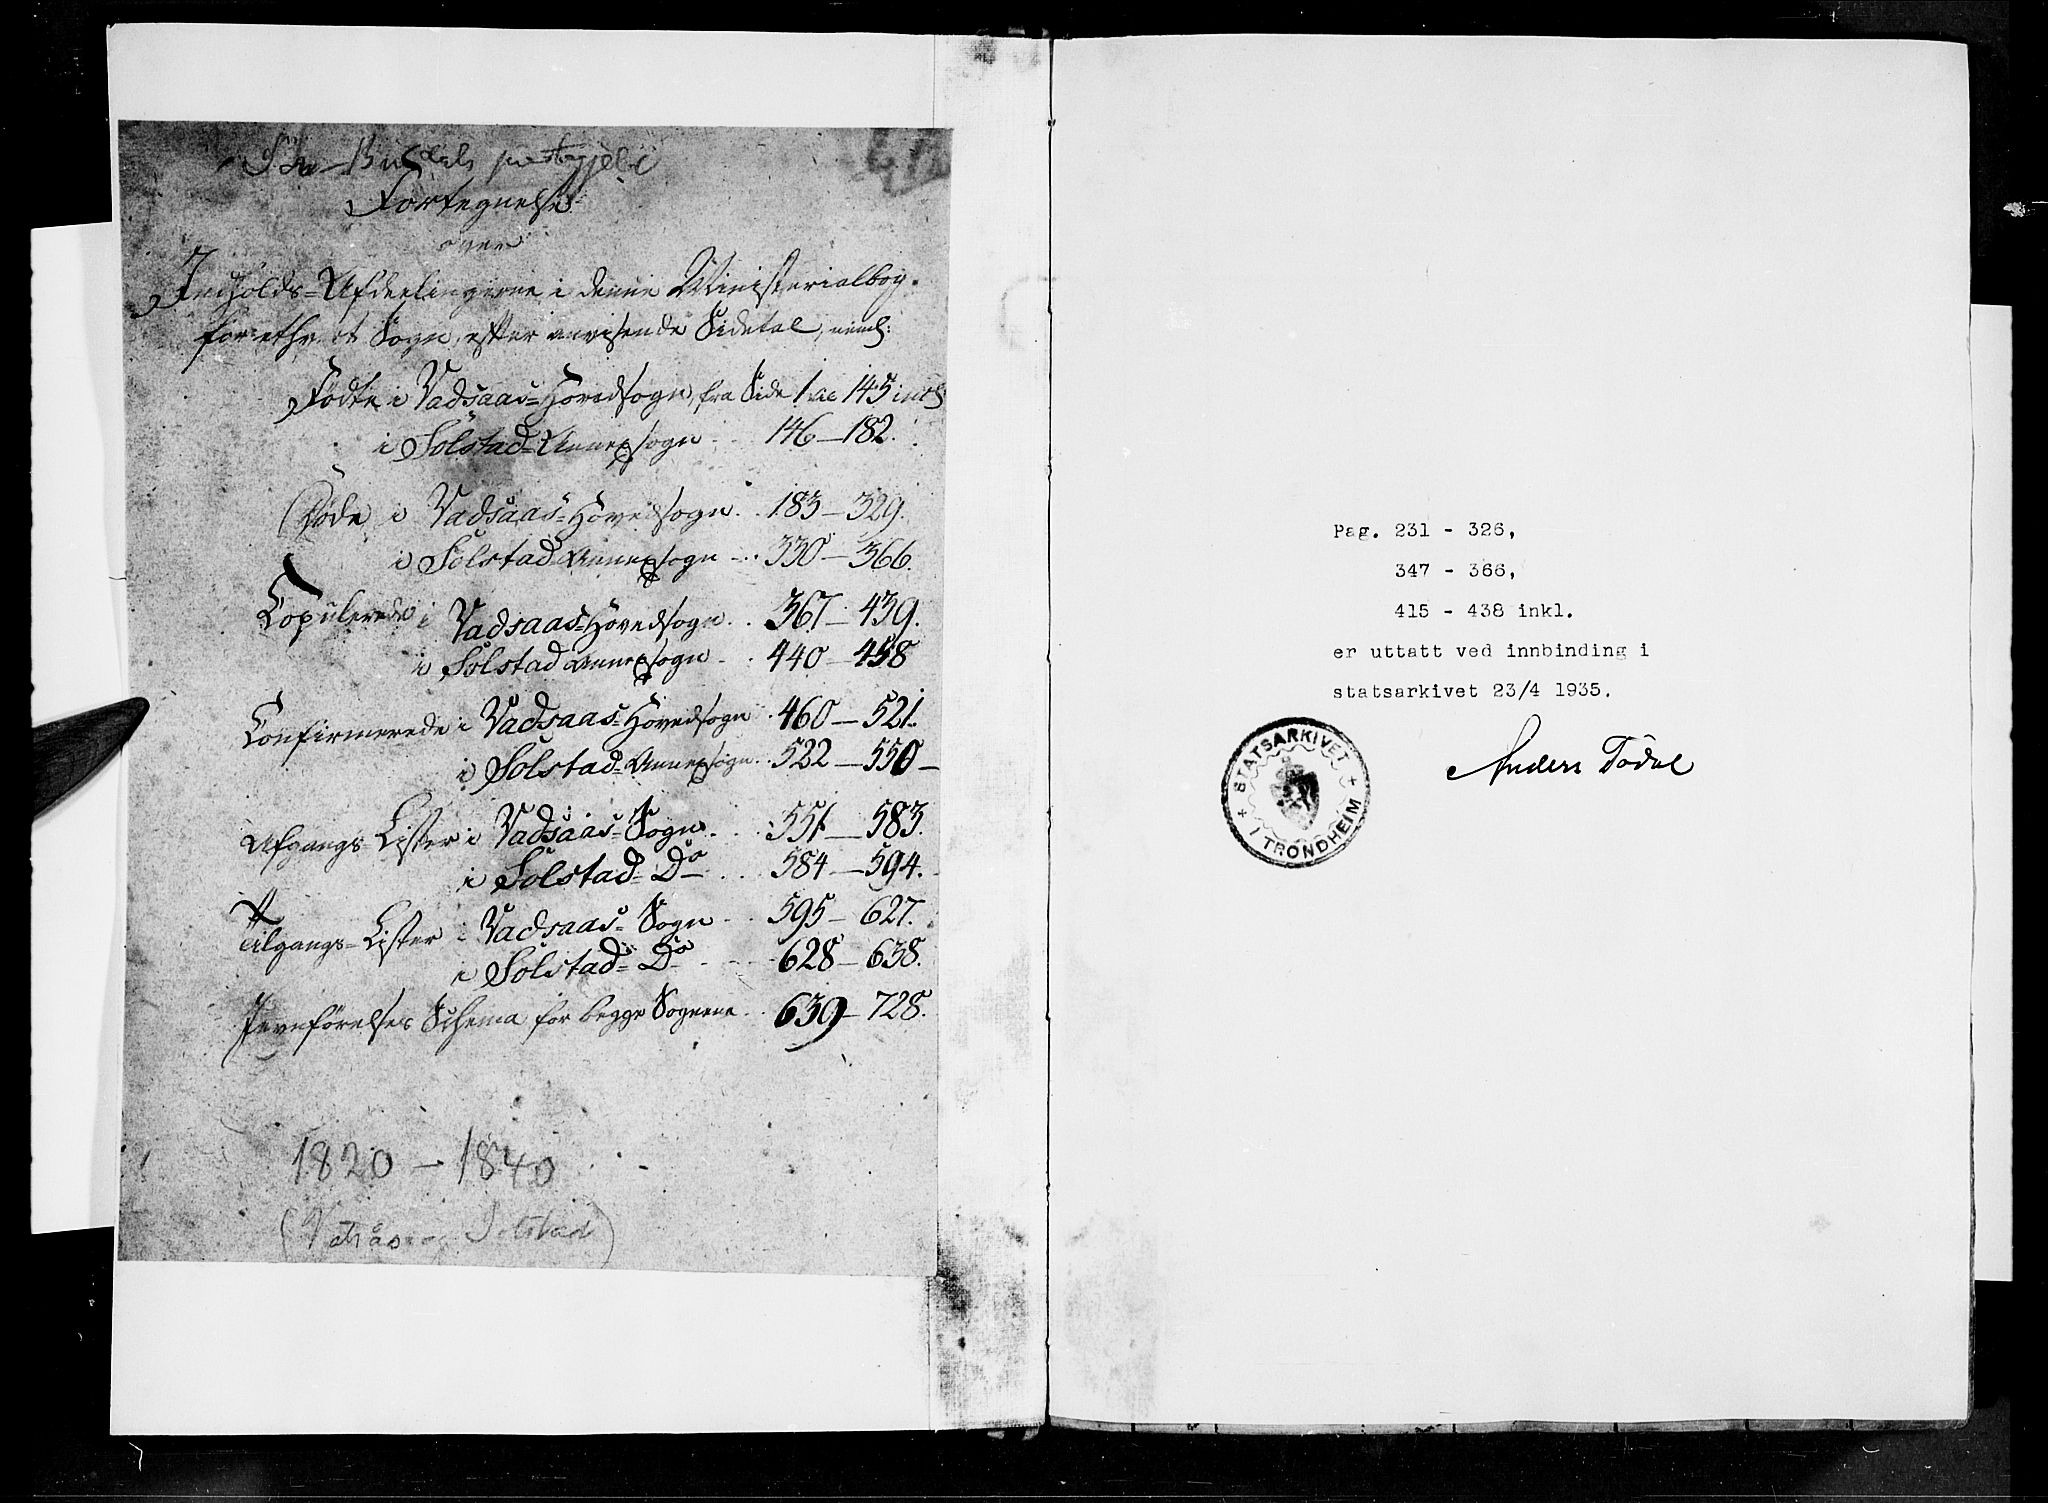 Fortegnelse
over
Indholds-Afdeelingerne i denne Ministerialbog.
for ethvert Sogn, efter anvisende Sidetal, neml:
Födte i Vadsaas-Hovedsogn, fra Side 1 til 145 incl
i Solstad-Annexsogn 146 — 182.
Døde i Vadsaas-Hovedsogn 183 — 329.
i Solstad Annexsogn 330 — 366.
Copulerede i Vadsaas-Hovedsogn 367 - 439.
i Solstad Annexsogn 440 — 458
Confirmerede i Vadsaas-Hovedsogn 460 — 521.
i Solstad-Annexsogn 522 — 550
Afgangs-Lister i Vadsaas-Sogn 551 — 583.
i Solstad-Do 584 — 594.
Tilgangs-Lister i Vadsaas-Sogn 595 — 627.
i Solstad-Do 628 — 638.
Jevnførelses Schema for begge Sognene 639 — 728.
1820 — 1840
(Vatsås og Solstad)
Pag. 231 - 326,
347 - 366,
415 - 438 inkl.
er uttatt ved innbinding i
statsarkivet 23/4 1935.
Anders Todal
STATSARKIVET
I TRONDHEIM